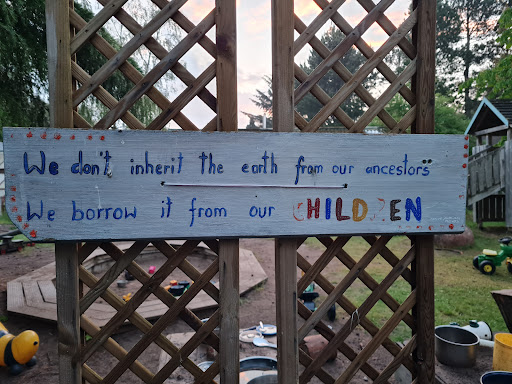 We don't inherit the earth from our ancestors
We borrow it from our CHILDREN